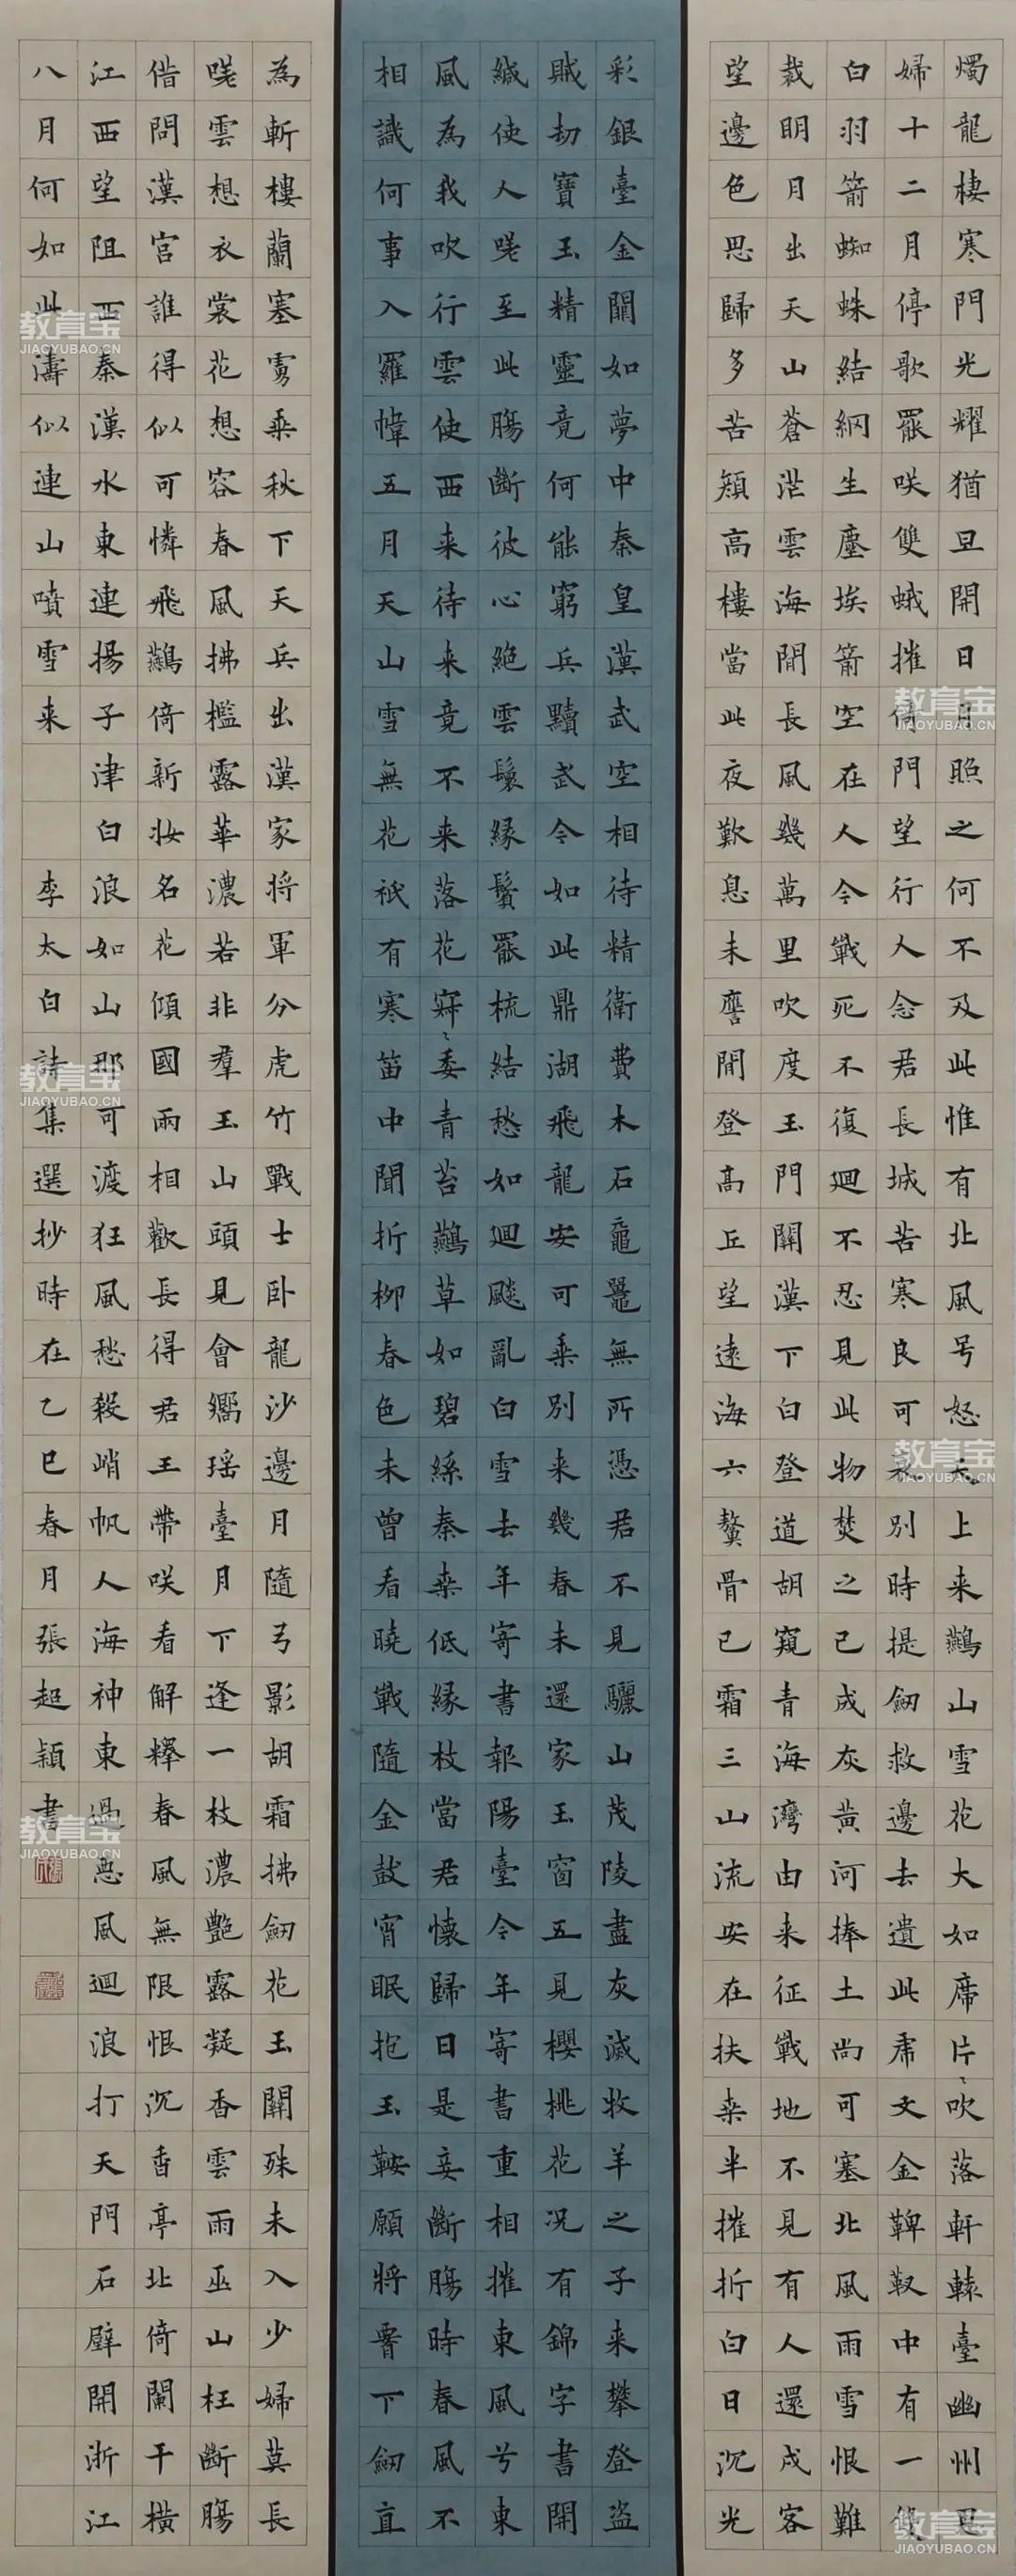 燭龍棲寒門光耀猶旦開日月照之何不及此惟有北風号怒天上来鷰山雪花大如席片〻吹落軒轅臺幽州思
婦十二月停歌罷咲雙蛾摧倚門望行人念君長城苦寒良可哀別時提劒救邊去遺此虎文金鞞靫中有一雙
白羽箭蜘蛛結網生塵埃箭空在人今戰死不復廻不忍見此物焚之已成灰黃河捧土尚可塞北風雨雪恨難
裁明月出天山蒼茫雲海間長風幾萬里吹度玉門關漢下白登道胡窺青海灣由来征戰地不見有人還戍客
望邊色思歸多苦顏高樓當此夜歎息未應閒登高丘望遠海六鰲骨已霜三山流安在扶桑半摧折白日沉光
彩銀臺金闕如夢中秦皇漢武空相待精衛費木石黿鼉無所憑君不見驪山茂陵盡灰滅牧羊之子来攀登盜
賊劫寶玉精靈竟何能窮兵黷武今如此鼎湖飛龍安可乘別来幾春未還家玉窗五見櫻桃花況有錦字書開
緘使人嗟至此腸斷彼心絕雲鬟緑鬢罷梳結愁如廻飈亂白雪去年寄書報陽臺今年寄書重相摧東風兮東
風為我吹行雲使西来待来竟不来落花寂〻委青苔鷰草如碧絲秦桑低緑枝當君懷歸日是妾斷腸時春風不
相識何事入羅幃五月天山雪無花祇有寒笛中聞折柳春色未曾看曉戰隨金鼓宵眠抱玉鞍願將腰下劒直
為斬樓蘭塞虜乘秋下天兵出漢家将軍分虎竹戰士卧龍沙邊月隨弓影胡霜拂劒花玉關殊未入少婦莫長
嗟雲想衣裳花想容春風拂檻露華濃若非羣玉山頭見會嚮瑶臺月下逢一枝濃艷露凝香雲雨巫山枉斷腸
借問漢宮誰得似可憐飛鷰倚新妝名花傾國兩相歡長得君王帶咲看解釋春風無限恨沉香亭北倚闌干橫
江西望阻西秦漢水東連揚子津白浪如山那可渡狂風愁殺峭帆人海神東過惡風迴浪打天門石壁開浙江
八月何如此濤似連山噴雪来
李太白詩集選抄時在乙巳春月張超穎書
教育宝
JIAOYUBAO.CN
教育宝
JIAOYUBAO.CN
教育宝
JIAOYUBAO.CN
教育宝
JIAOYUBAO.CN
教育宝
JIAOYUBAO.CN
教育宝
JIAOYUBAO.CN